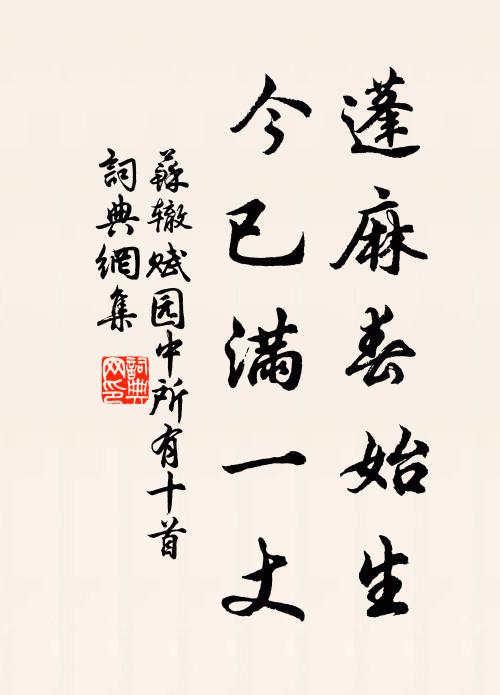 蓬麻春始生
今已滿一丈
蘇辙赋园中所有十首
詞典網集
詞典网印